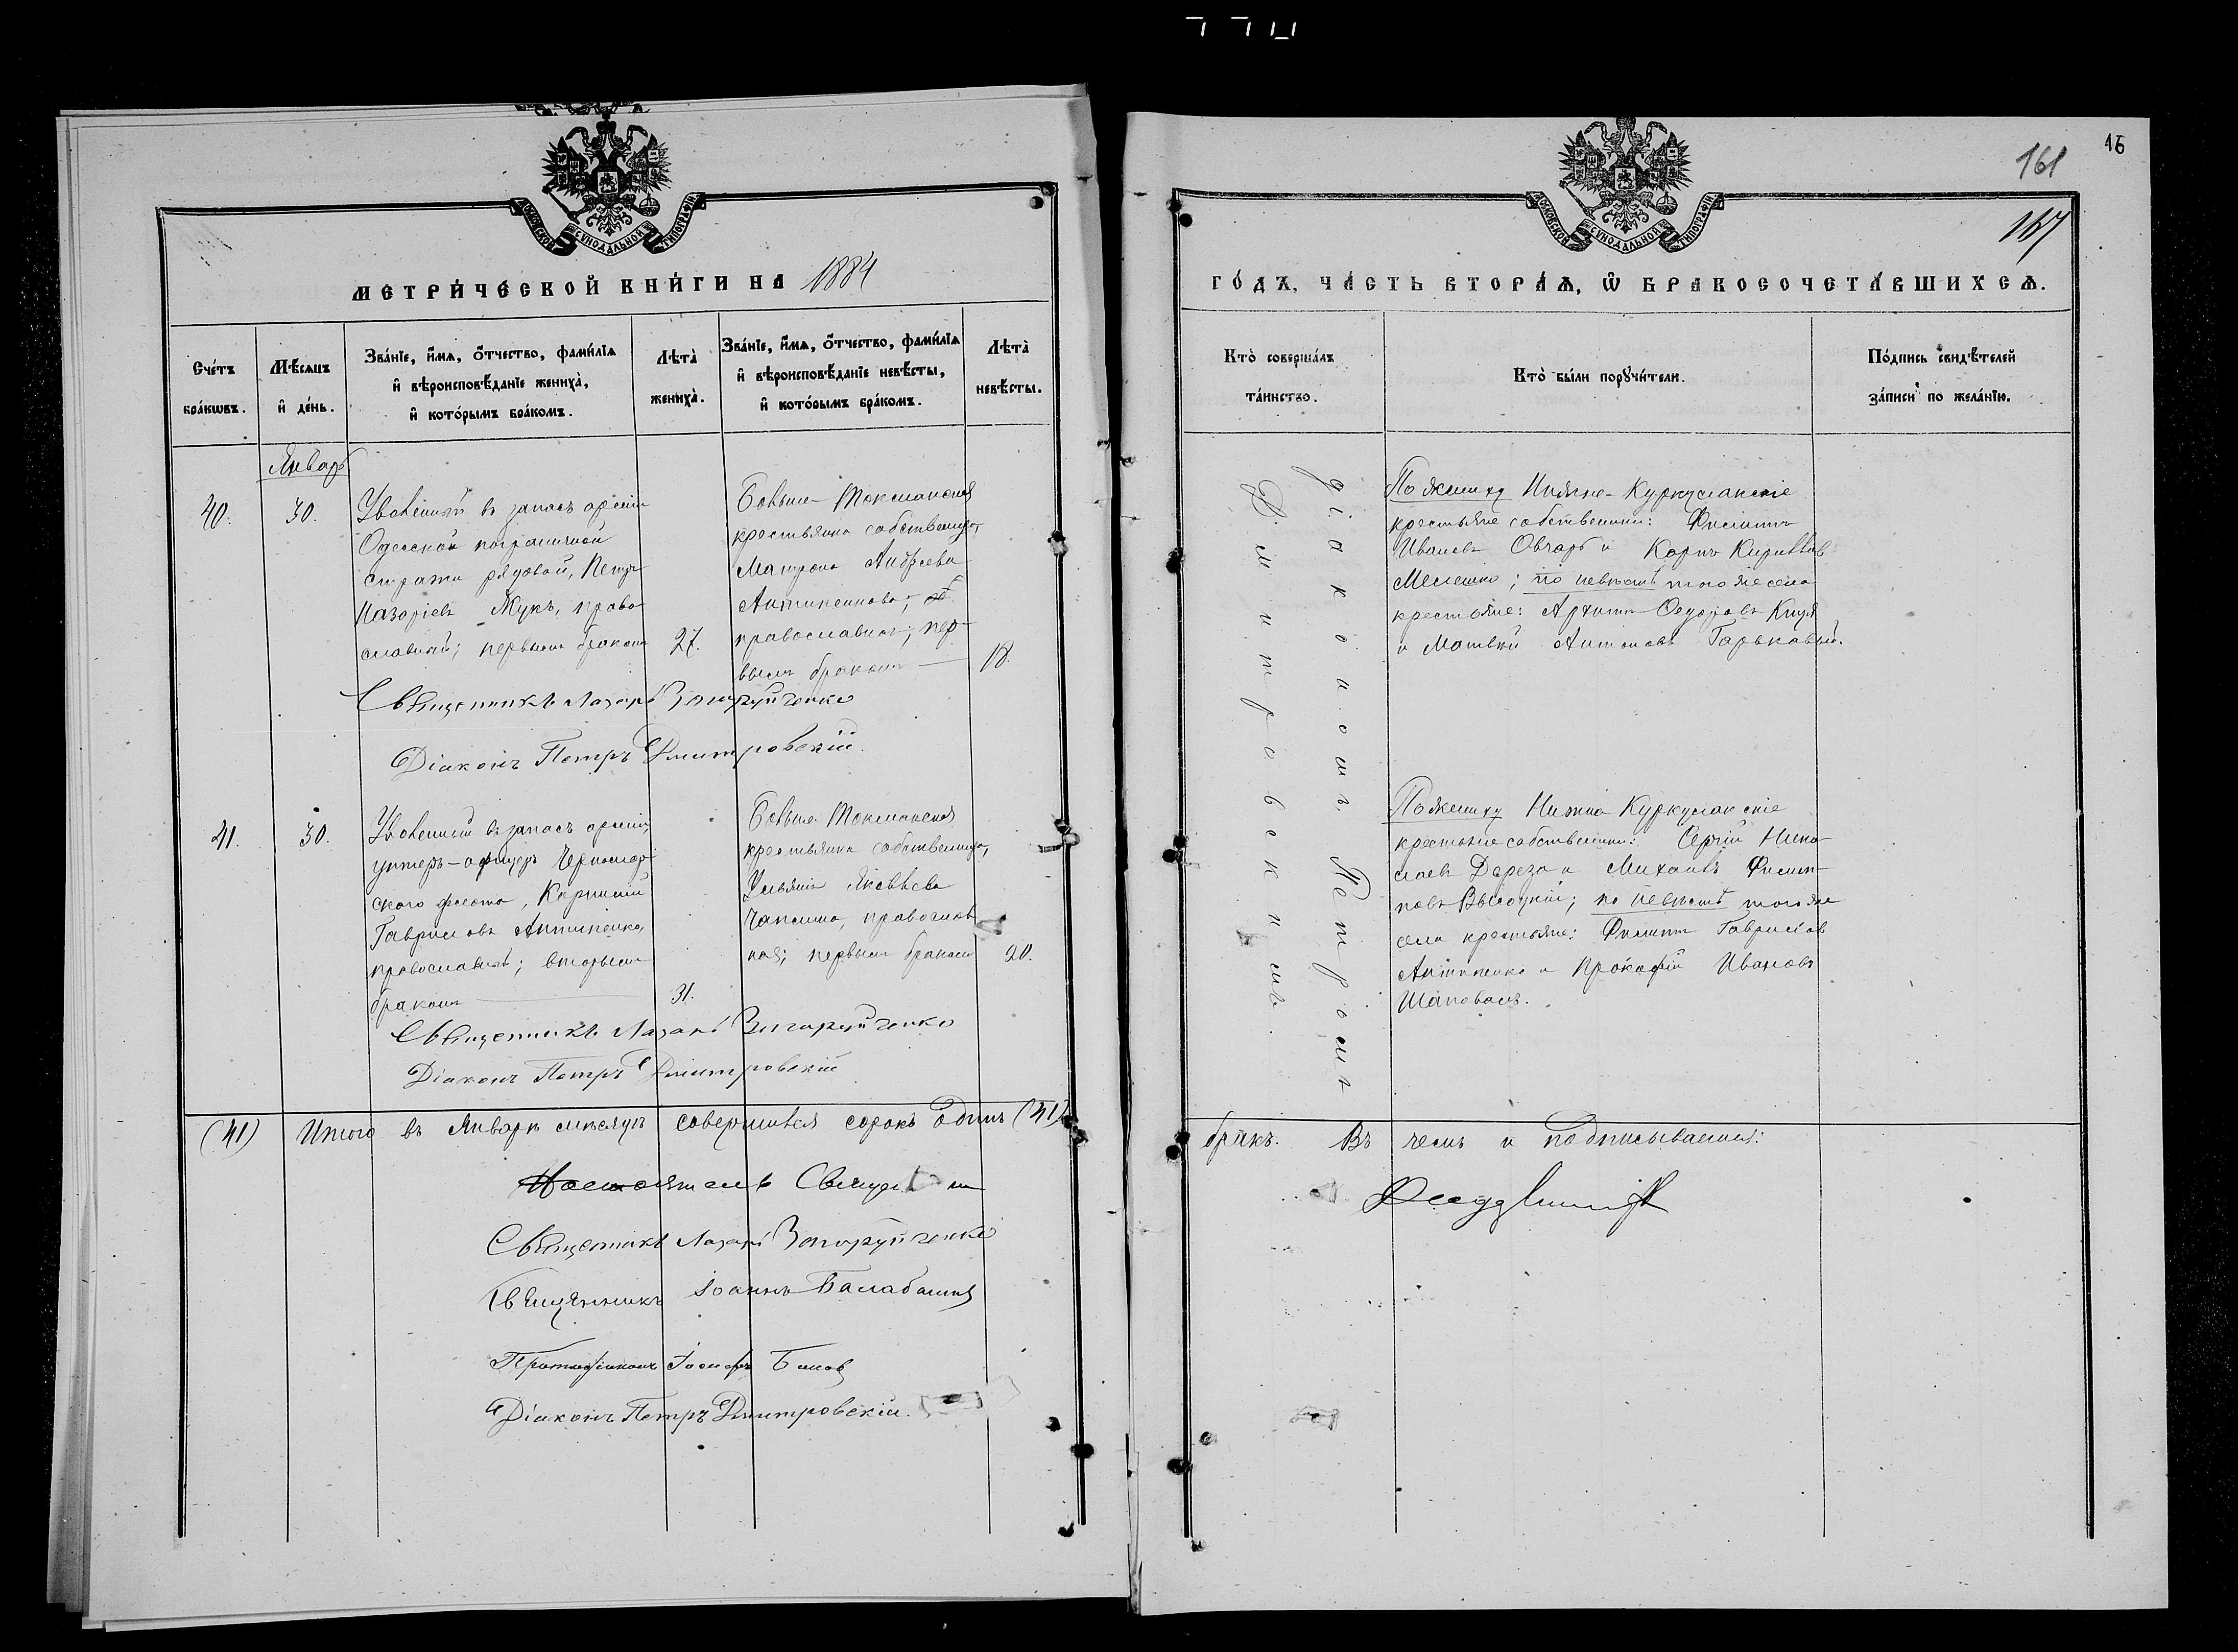 161
16
167
МОСКОВСКОЙ СѴНОДАЛЬНОЙ ТИПОГРАФІИ
МОСКОВСКОЙ СѴНОДАЛЬНОЙ ТИПОГРАФІИ
МЕТРИ́ЧЕСКОЙ КНИ́ГИ НА 1884
ГО́ДЪ, ЧА́СТЬ ВТОРА́Ѧ, Ѡ БРАКОСОЧЕТА́ВШИХСѦ.
Сче́тъ бра́кѡвъ.
Мѣ́сяцъ и де́нь.
Зва́нїе, и́мѧ, о́тчество, фами́лїѧ
и вѣроисповѣ́данїе жениха̀,
и кото́рымъ бра́комъ.
Лѣта̀ жениха̀.
Зва́нїе, и́мѧ, о́тчество, фами́лїѧ
и вѣроисповѣ́данїе невѣ́сты,
и кото́рымъ бра́комъ.
Лѣта̀ невѣ́сты.
Кто̀ соверша́лъ та́инство.
Кто̀ бы́ли порꙋчи́тели.
По́дпись свидѣ́телей за́писи по жела́нїю.
Январь
40.
30.
Уволенный въ запасъ арміи
Одесской пограничной
стражи рядовой, Петръ
Назаріевъ Жукъ, право
славный; первымъ бракомъ
27.
Больше-Токмакская
крестьянка собственница,
Матрона Андреева
Антипенкова,
православная; пер-
вымъ бракомъ
18.
Священникъ Лазарь
Діаконъ Петръ Дмитровскій.
діакономъ Петромъ
Дмитровскимъ.
По жениху Нижне-Куркулакскіе
крестьяне собственники: Филиппъ
Ивановъ Овчаръ и Карпъ Кирилловъ
Мелешко; по невѣстѣ того же села
крестьяне: Архипъ Федоровъ
и Матвѣй Антоновъ Гарькавый.
41.
30.
Уволенный въ запасъ арміи,
унтеръ-офицеръ Черномор
скаго флота,
Гавриловъ Антипенко,
православный; вторымъ
бракомъ
31.
Больше Токмакская
крестьянка собственница,
Ульянія Яковлева
православ
ная; первымъ бракомъ
20.
Священникъ Лазарь
Діаконъ Петръ Дмитровскій
По жениху Нижне Куркулакскіе
крестьяне собственники: Сергій Нико
лаевъ Дереза и Михаилъ Филип
повъ Высоцкій; по невѣстѣ того же
села крестьяне: Филиппъ Гавриловъ
Антипенко и Прокофій Ивановъ
Шаповалъ.
(41) Итого въ Январѣ мѣсяцѣ совершился сорокъ одинъ (41)
бракъ. Въ чемъ и подписываемся:
Настоятель
Священникъ Лазарь
Священникъ Іоаннъ
Протодіаконъ Іосифъ
Діаконъ Петръ Дмитровскій.